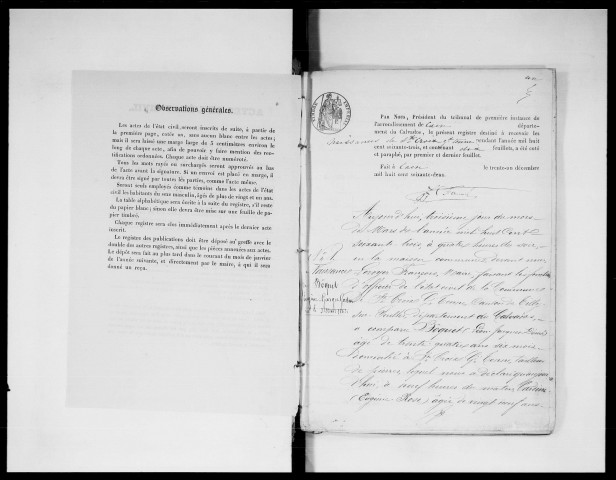 Observations générales.
Les actes de l'état civil seront inscrits de suite, à partir de
la première page, cotée un, sans aucun blanc entre les actes;
mais il sera laissé une marge large de 5 centimètres environ le
long de chaque acte, afin de pouvoir y faire mention des rec-
tifications ordonnées. Chaque acte doit être numéroté.
Tous les mots rayés ou surchargés seront approuvés au bas
de l'acte avant la signature. Si un renvoi est placé en marge, il
devra être signé par toutes les parties, comme l'acte même.
Seront seuls employés comme témoins dans les actes de l'état
civil les habitants du sexe masculin, âgés de plus de vingt et un ans.
La table alphabétique sera écrite à la suite du registre, s'il reste
du papier blanc; sinon elle devra être mise sur une feuille de pa-
pier timbré.
Chaque registre sera clos immédiatement après le dernier acte
inscrit.
Le registre des publications doit être déposé au greffe avec le
double des autres registres, ainsi que les pièces annexées aux actes.
Le dépôt sera fait au plus tard dans le courant du mois de janvier
de l'année suivante, et directement par le maire, à qui il sera
donné un reçu.
Par Nous, Président du tribunal de première instance de
l'arrondissement de Caen départe-
ment du Calvados, le présent registre destiné à recevoir les
naissances de Ste Croix Gd Tonne pendant l'année mil huit
cent soixante-trois, et contenant feuillets, a été coté
et paraphé, par premier et dernier feuillet.
Fait à Caen le trente-un décembre
mil huit cent soixante-deux.
Aujourd'hui troisième jour du mois
de Mars de l'année mil huit Cent
soixante trois, à quatre heures du soir,
en la maison commune devant nous
François, Maire, faisant les fonctions
d'officier de l'état civil de la Commune
de Ste Croix Gd Tonne Canton de Tilly
sur Seulles département du Calvados,
a comparu Béquet
âgé de trente quatre ans
domicilié à Ste Croix Gd Tonne,
lequel nous a déclaré
à neuf heures du matin
Eugénie Rose, âgée de vingt neuf ans
N° 1
Naissances
Béquet